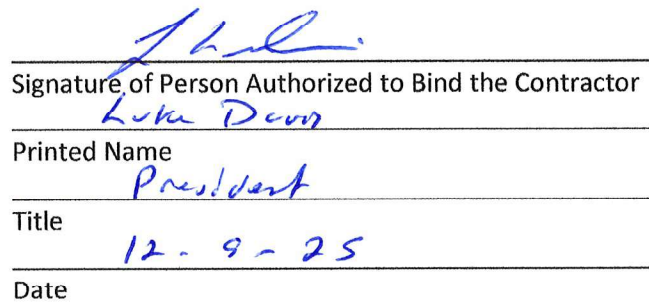 Signature of Person Authorized to Bind the Contractor
Luke
Printed Name
President
Title
12 - 9 - 25
Date